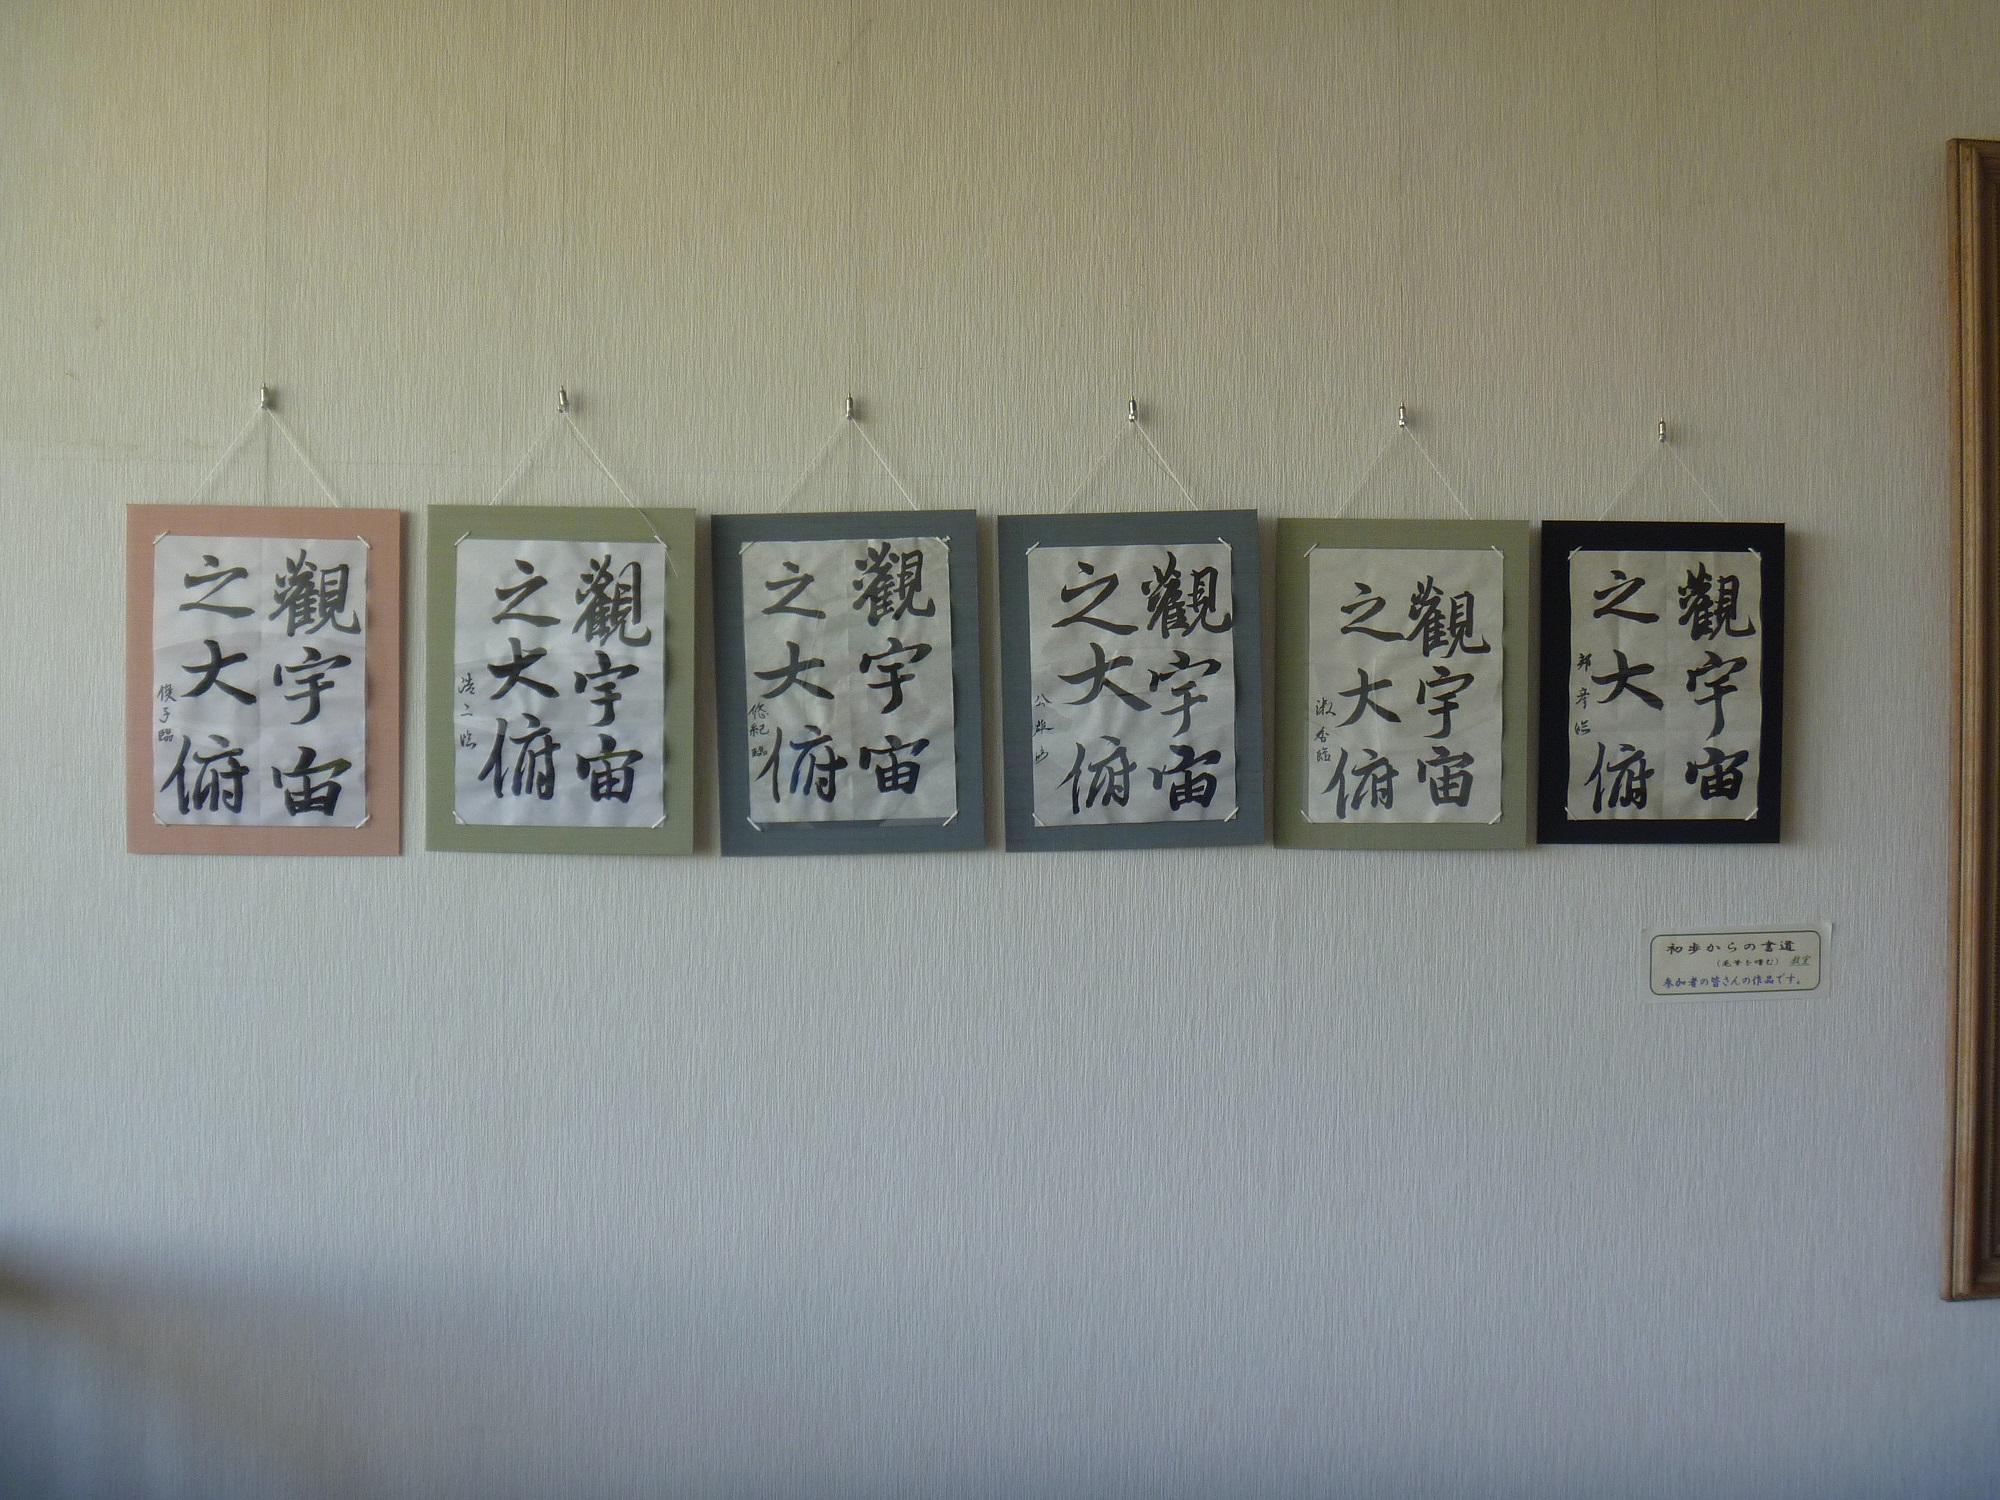 觀宇宙
之大俯
俊子臨
觀宇宙
之大俯
浩二臨
觀宇宙
之大俯
悠紀臨
觀宇宙
之大俯
觀宇宙
之大俯
淑香臨
觀宇宙
之大俯
邦彦臨
初歩からの書道
(毛筆を嗜む) 教室
参加者の皆さんの作品です。